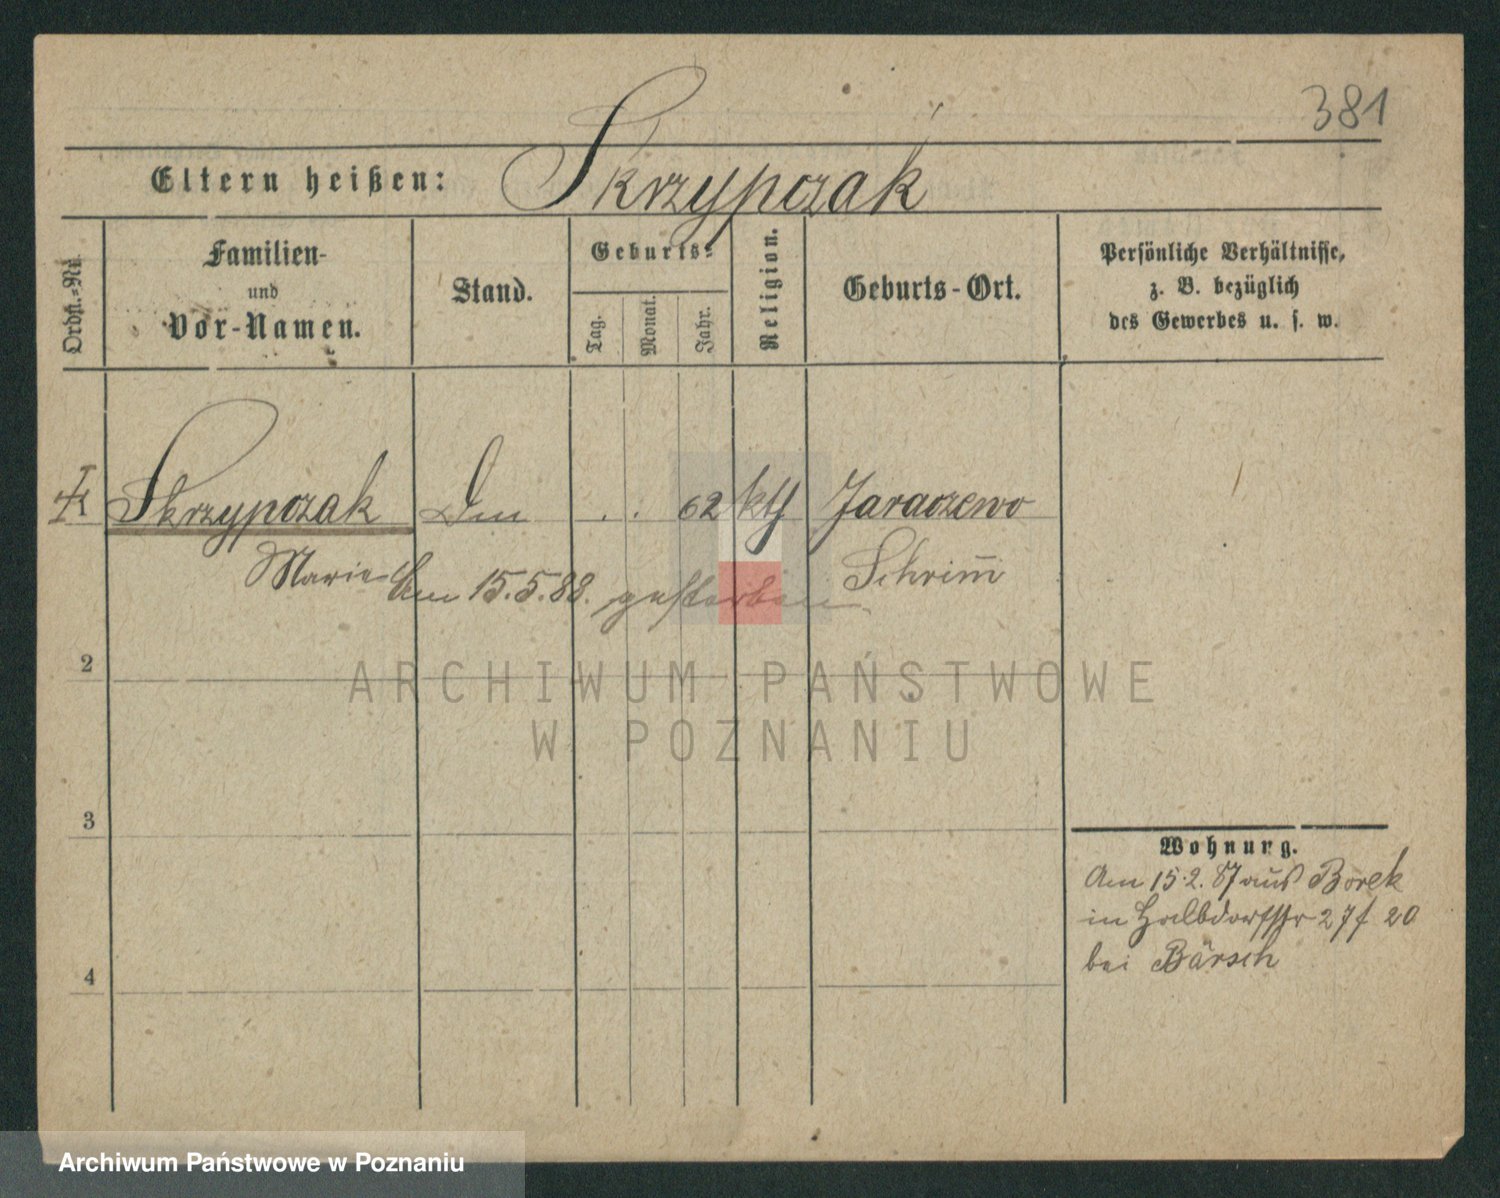 381
Eltern heißen: Skrzypczak
Ordn.-Nr.
Familien-
und
Vor-Namen.
Stand.
Geburts-
Tag.
Monat.
Jahr.
Religion.
Geburts-Ort.
Persönliche Verhältnisse,
z. B. bezüglich
des Gewerbes u. s. w.
1 Skrzypczak . . 62 kth Jaraczewo
Marie Am 15.5.88. gestorben Schrimm
2
3
4
Wohnung.
Am 15.2.87 aus Borek
in Halbdorfstr 27 f 20
bei Bärsch
ARCHIWUM PAŃSTWOWE
W POZNANIU
Archiwum Państwowe w Poznaniu